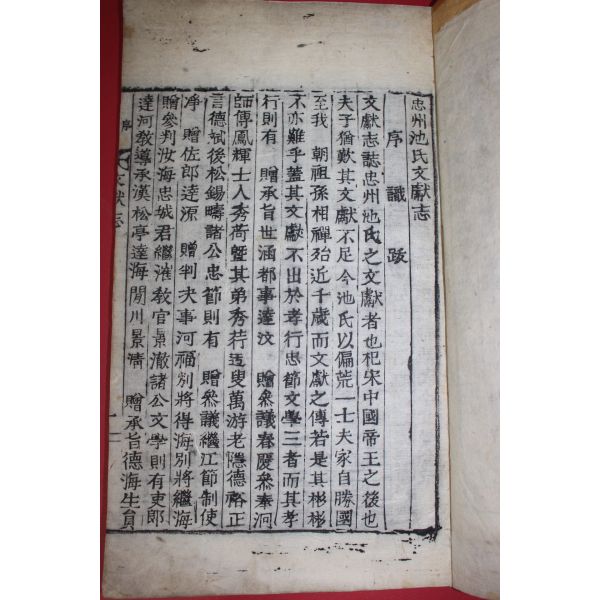 忠州池氏文獻志
序 識 跋
文獻志誌忠州池氏之文獻者也杞宋中國帝王之後也
夫子猶歎其文獻不足今池氏以偏荒一士夫家自勝國
至我 朝祖孫相禪殆近千歲而文獻之傳若是其彬彬
不亦難乎蓋其文獻不出於孝行忠節文學三者而其孝
行則有 贈承旨世涵都事達汶 贈參議春慶參奉泂
師傅鳳輝士人秀荷曁其弟秀荇透叟萬游老隱德裕正
言德斌後松錫疇諸公忠節則有 贈參議繼江節制使
淨 贈佐郎達源 贈判夫事河福別將得海別將繼海
贈參判汝海忠城君繼漼敎官景澈諸公文學則有吏郎
達河敎導承漢松亭達海閒川景淸 贈承旨德海生員
序 文獻志 一